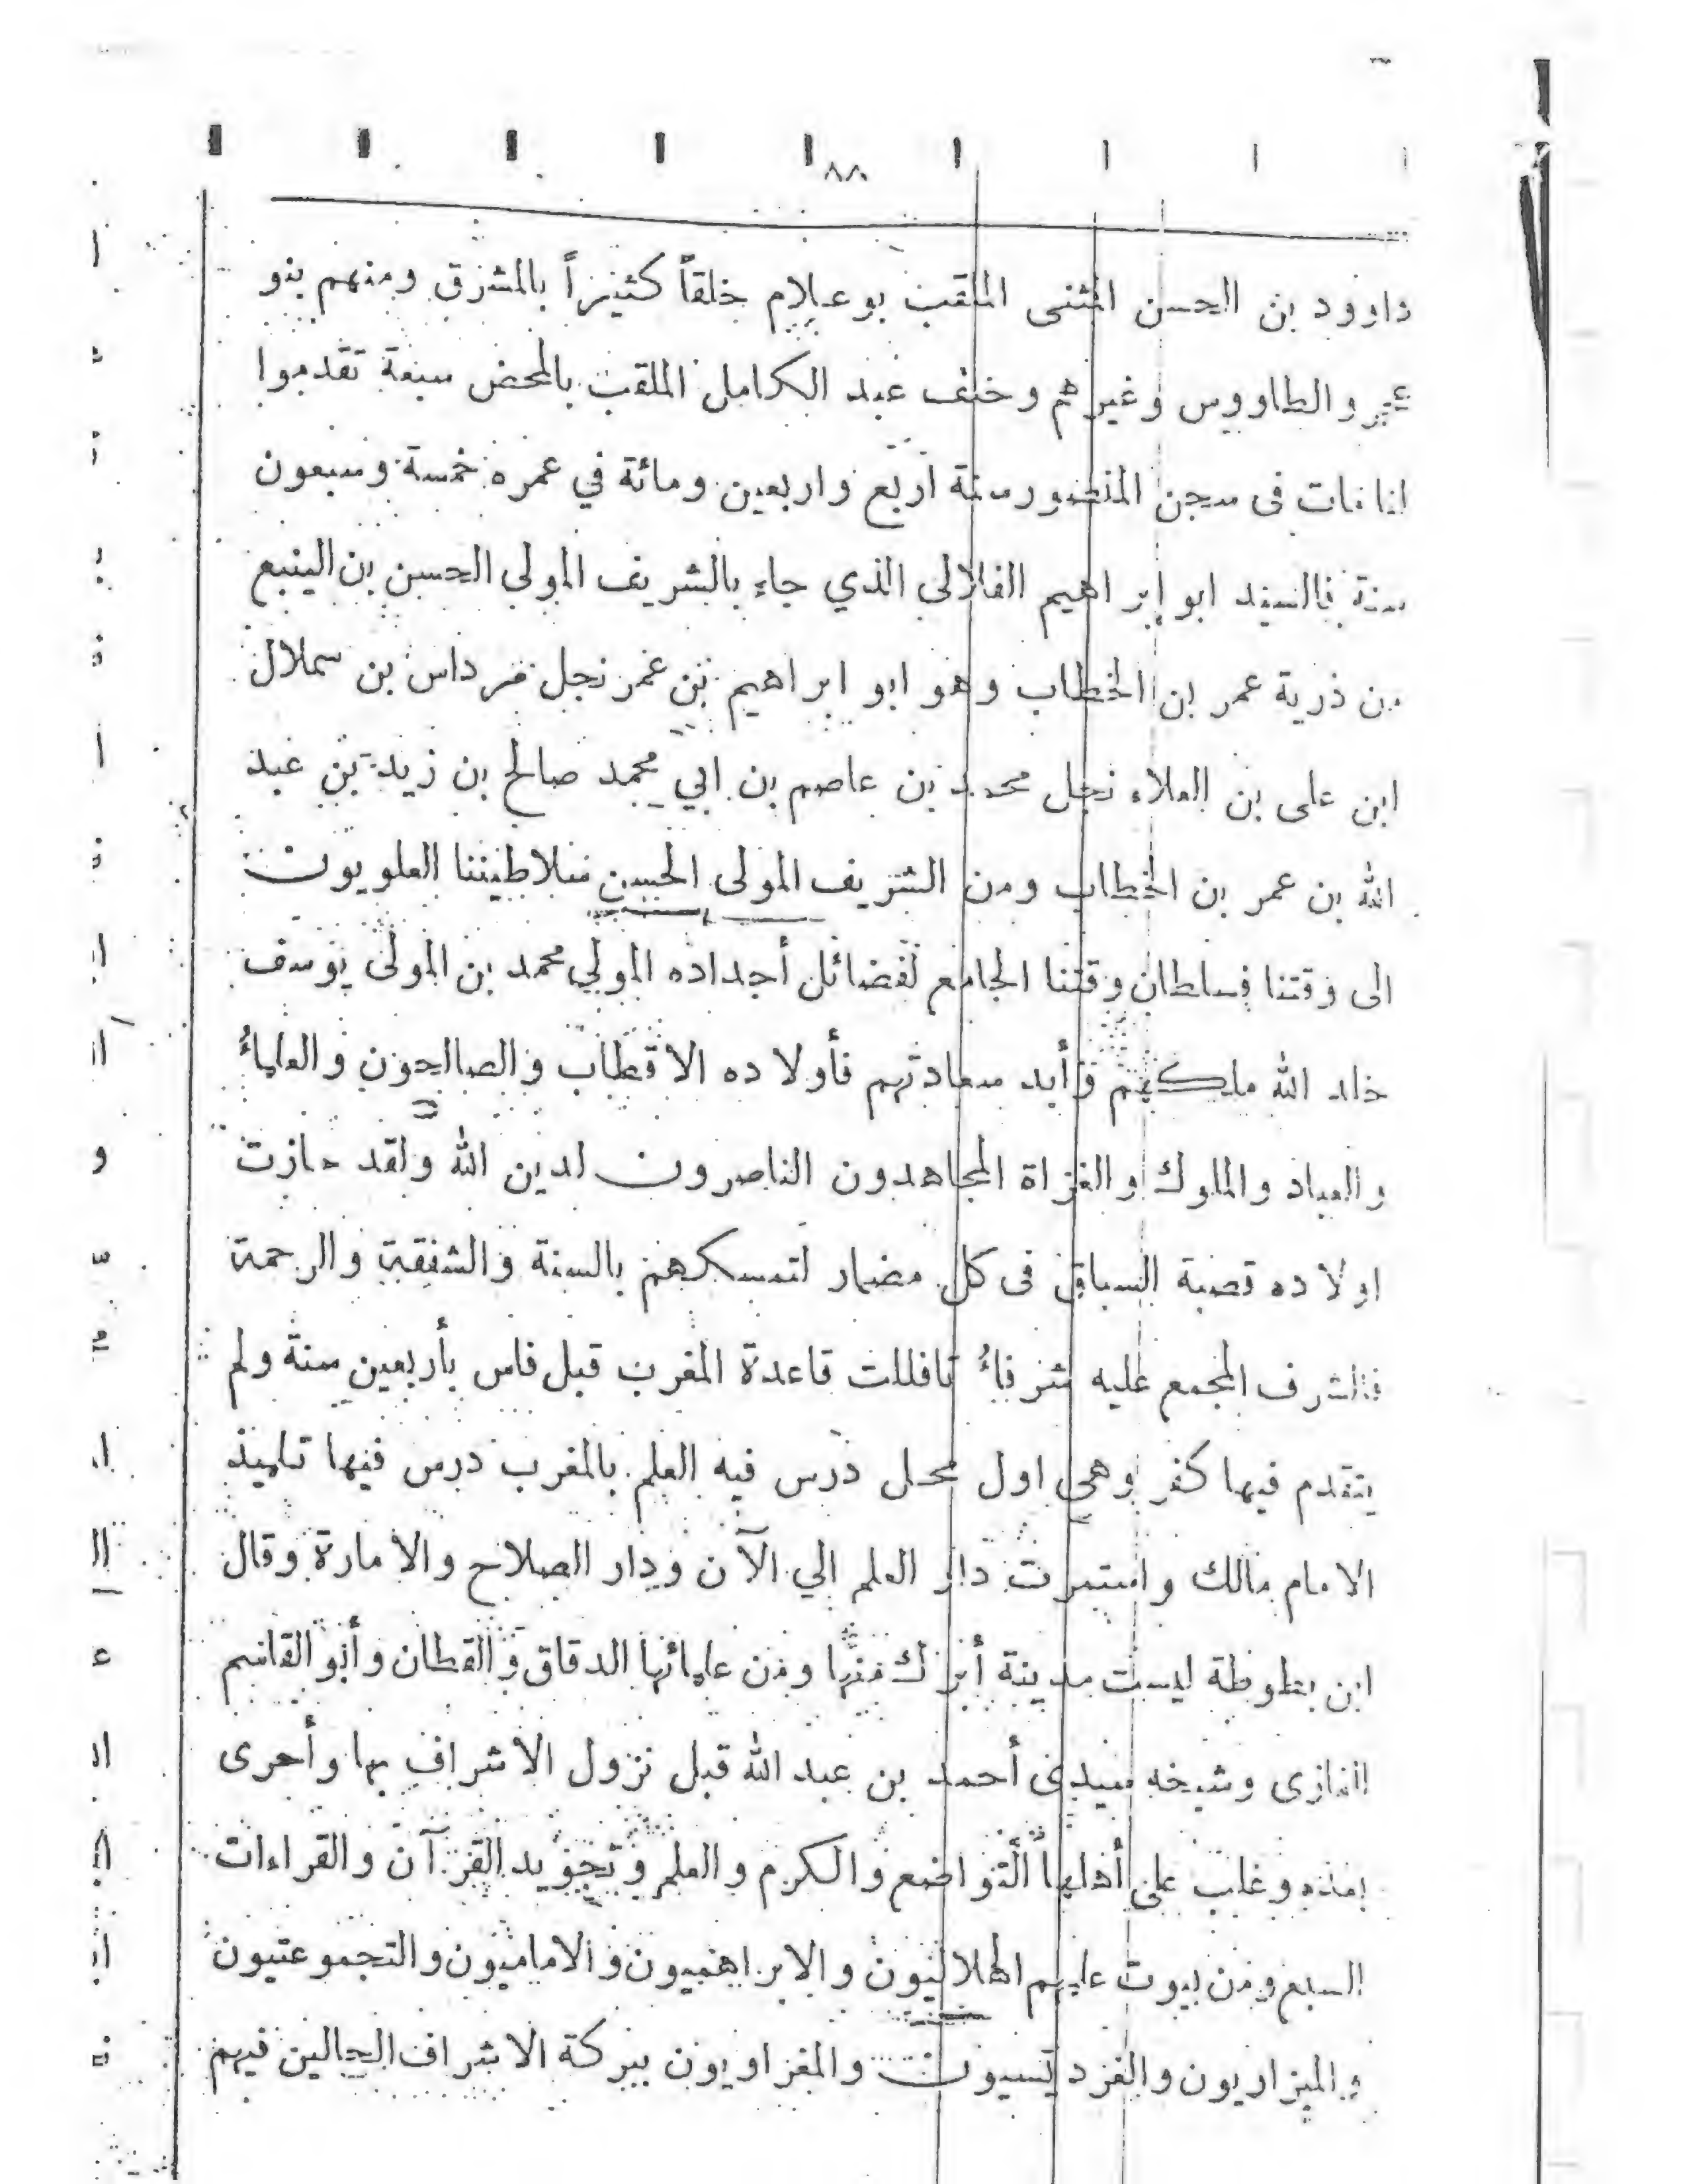 ٨٨
داوود بن الحسن المثنى الملقب بوعلام خلقاً كثيراً بالمشرق ومنهم بنو
عمير والطاووس وغيرهم وخلف عبد الكامل الملقب بالمحض سبعة تقدموا
انا مات فى سجن المنصور سنة اربع واربعين ومائة في عمره خمسة وسبعون
سنة فالسيد ابو ابراهيم الفلالى الذي جاء بالشريف المولى الحسن بن الينبع
من ذرية عمر بن الخطاب وهو ابو ابراهيم بن عمر نجل مرداس بن سملال
ابن على بن العلاء نجل محمد بن عاصم بن ابي محمد صالح بن زيد بن عبد
الله بن عمر بن الخطاب ومن الشريف المولى الحسن سلاطيننا العلويون
الى وقتنا فسلطان وقتنا الجامع لفضائل أجداده المولي محمد بن المولى يوسف
خلد الله ملكهم وأبد سعادتهم فأولاده الاقطاب والصالحون والعلماءُ
والعباد والملوك والغزاة المجاهدون الناصرون لدين الله ولقد حازت
اولاده قصبة السباق فى كل مضمار لتمسكهم بالسنة والشفقة والرحمة
فالشرف المجمع عليه شرفاءُ تافللت قاعدة المغرب قبل فاس بأربعين سنة ولم
يتقدم فيها كفر وهى اول محل درس فيه العلم بالمغرب درس فيها تلميذ
الامام مالك واستمرت دار العلم الي الآن ودار الصلاح والامارة وقال
ابن بطوطة ليست مدينة أبرك منها ومن علمائها الدقاق والقطان وأبو القاسم
الغازى وشيخه سيدى أحمد بن عبد الله قبل نزول الاشراف بها وأحرى
بعده وغلب على أهلها التواضع والكرم والعلم وتجويد القرآن والقراءات
السبع ومن بيوت علمهم الهلاليون والابراهميون والاماميون والتجموعتيون
والمزاريون والغرديسيون والمغراويون ببركة الاشراف الحالين فيهم